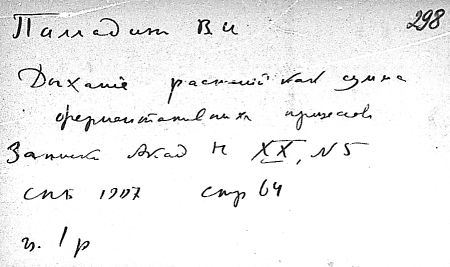 298
Палладин В И
Дыханіе растений как сумма
ферментативных процессов
Записки Акад Н XX, N 5
СПб 1907 стр 64
ц. 1 р